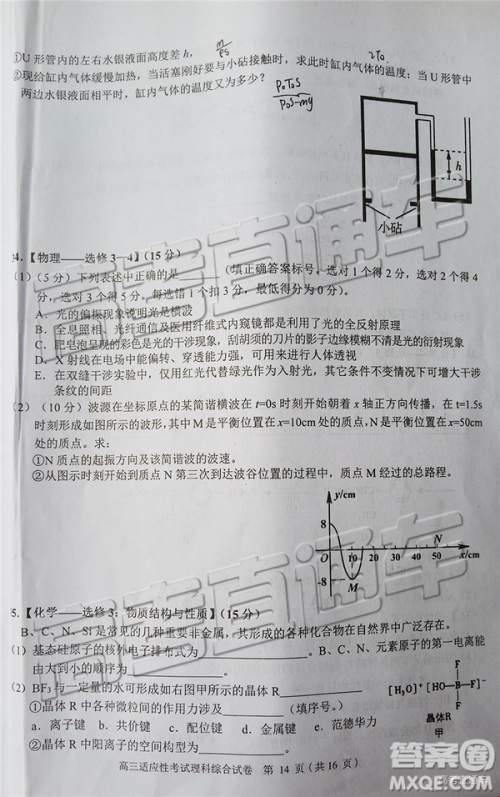 ①U 形管内的左右水银液面高度差 h,
m/ρs
2T₀
②现给缸内气体缓慢加热，当活塞刚好要与小砧接触时，求此时缸内气体的温度；当 U 形管中
两边水银液面相平时，缸内气体的温度又为多少？
P₀T₀S
P₀S-mg
h
小砧
4.【物理——选修 3—4】(15 分)
(1)（5 分）下列表述中正确的是________（填正确答案标号，选对 1 个得 2 分，选对 2 个得 4
分，选对 3 个得 5 分，每选错 1 个扣 3 分，最低得分为 0 分）。
A．光的偏振现象说明光是横波
B．全息照相、光纤通信及医用纤维式内窥镜都是利用了光的全反射原理
C．肥皂泡呈现的彩色是光的干涉现象，刮胡须的刀片的影子边缘模糊不清是光的衍射现象
D．X 射线在电场中能偏转、穿透能力强，可用来进行人体透视
E．在双缝干涉实验中，仅用红光代替绿光作为入射光，其它条件不变情况下可增大干涉
条纹的间距
(2)（10 分）波源在坐标原点的某简谐横波在 t=0s 时刻开始朝着 x 轴正方向传播，在 t=1.5s
时刻形成如图所示的波形，其中 M 是平衡位置在 x=10cm 处的质点，N 是平衡位置在 x=50cm
处的质点。求：
①N 质点的起振方向及该简谐波的波速。
②从图示时刻开始到质点 N 第三次到达波谷位置的过程中，质点 M 经过的总路程。
y/cm
8
O
10 20 30 40 50
N
x/cm
-8
M
5.【化学——选修 3：物质结构与性质】(15 分)
B、C、N、Si 是常见的几种重要非金属，其形成的各种化合物在自然界中广泛存在。
(1) 基态硅原子的核外电子排布式为________；B、C、N、元素原子的第一电离能
由大到小的顺序为________。
(2) BF₃与一定量的水可形成如右图甲所示的晶体 R________
①晶体 R 中各种微粒间的作用力涉及________（填序号）。
a．离子键 b．共价键 c．配位键 d．金属键 e．范德华力
②晶体 R 中阳离子的空间构型为________。
[H₃O]⁺ [HO-B-F]⁻
F
F
晶体R
甲
高三适应性考试理科综合试卷 第 14 页（共 16 页）
高考直通车
答案圈